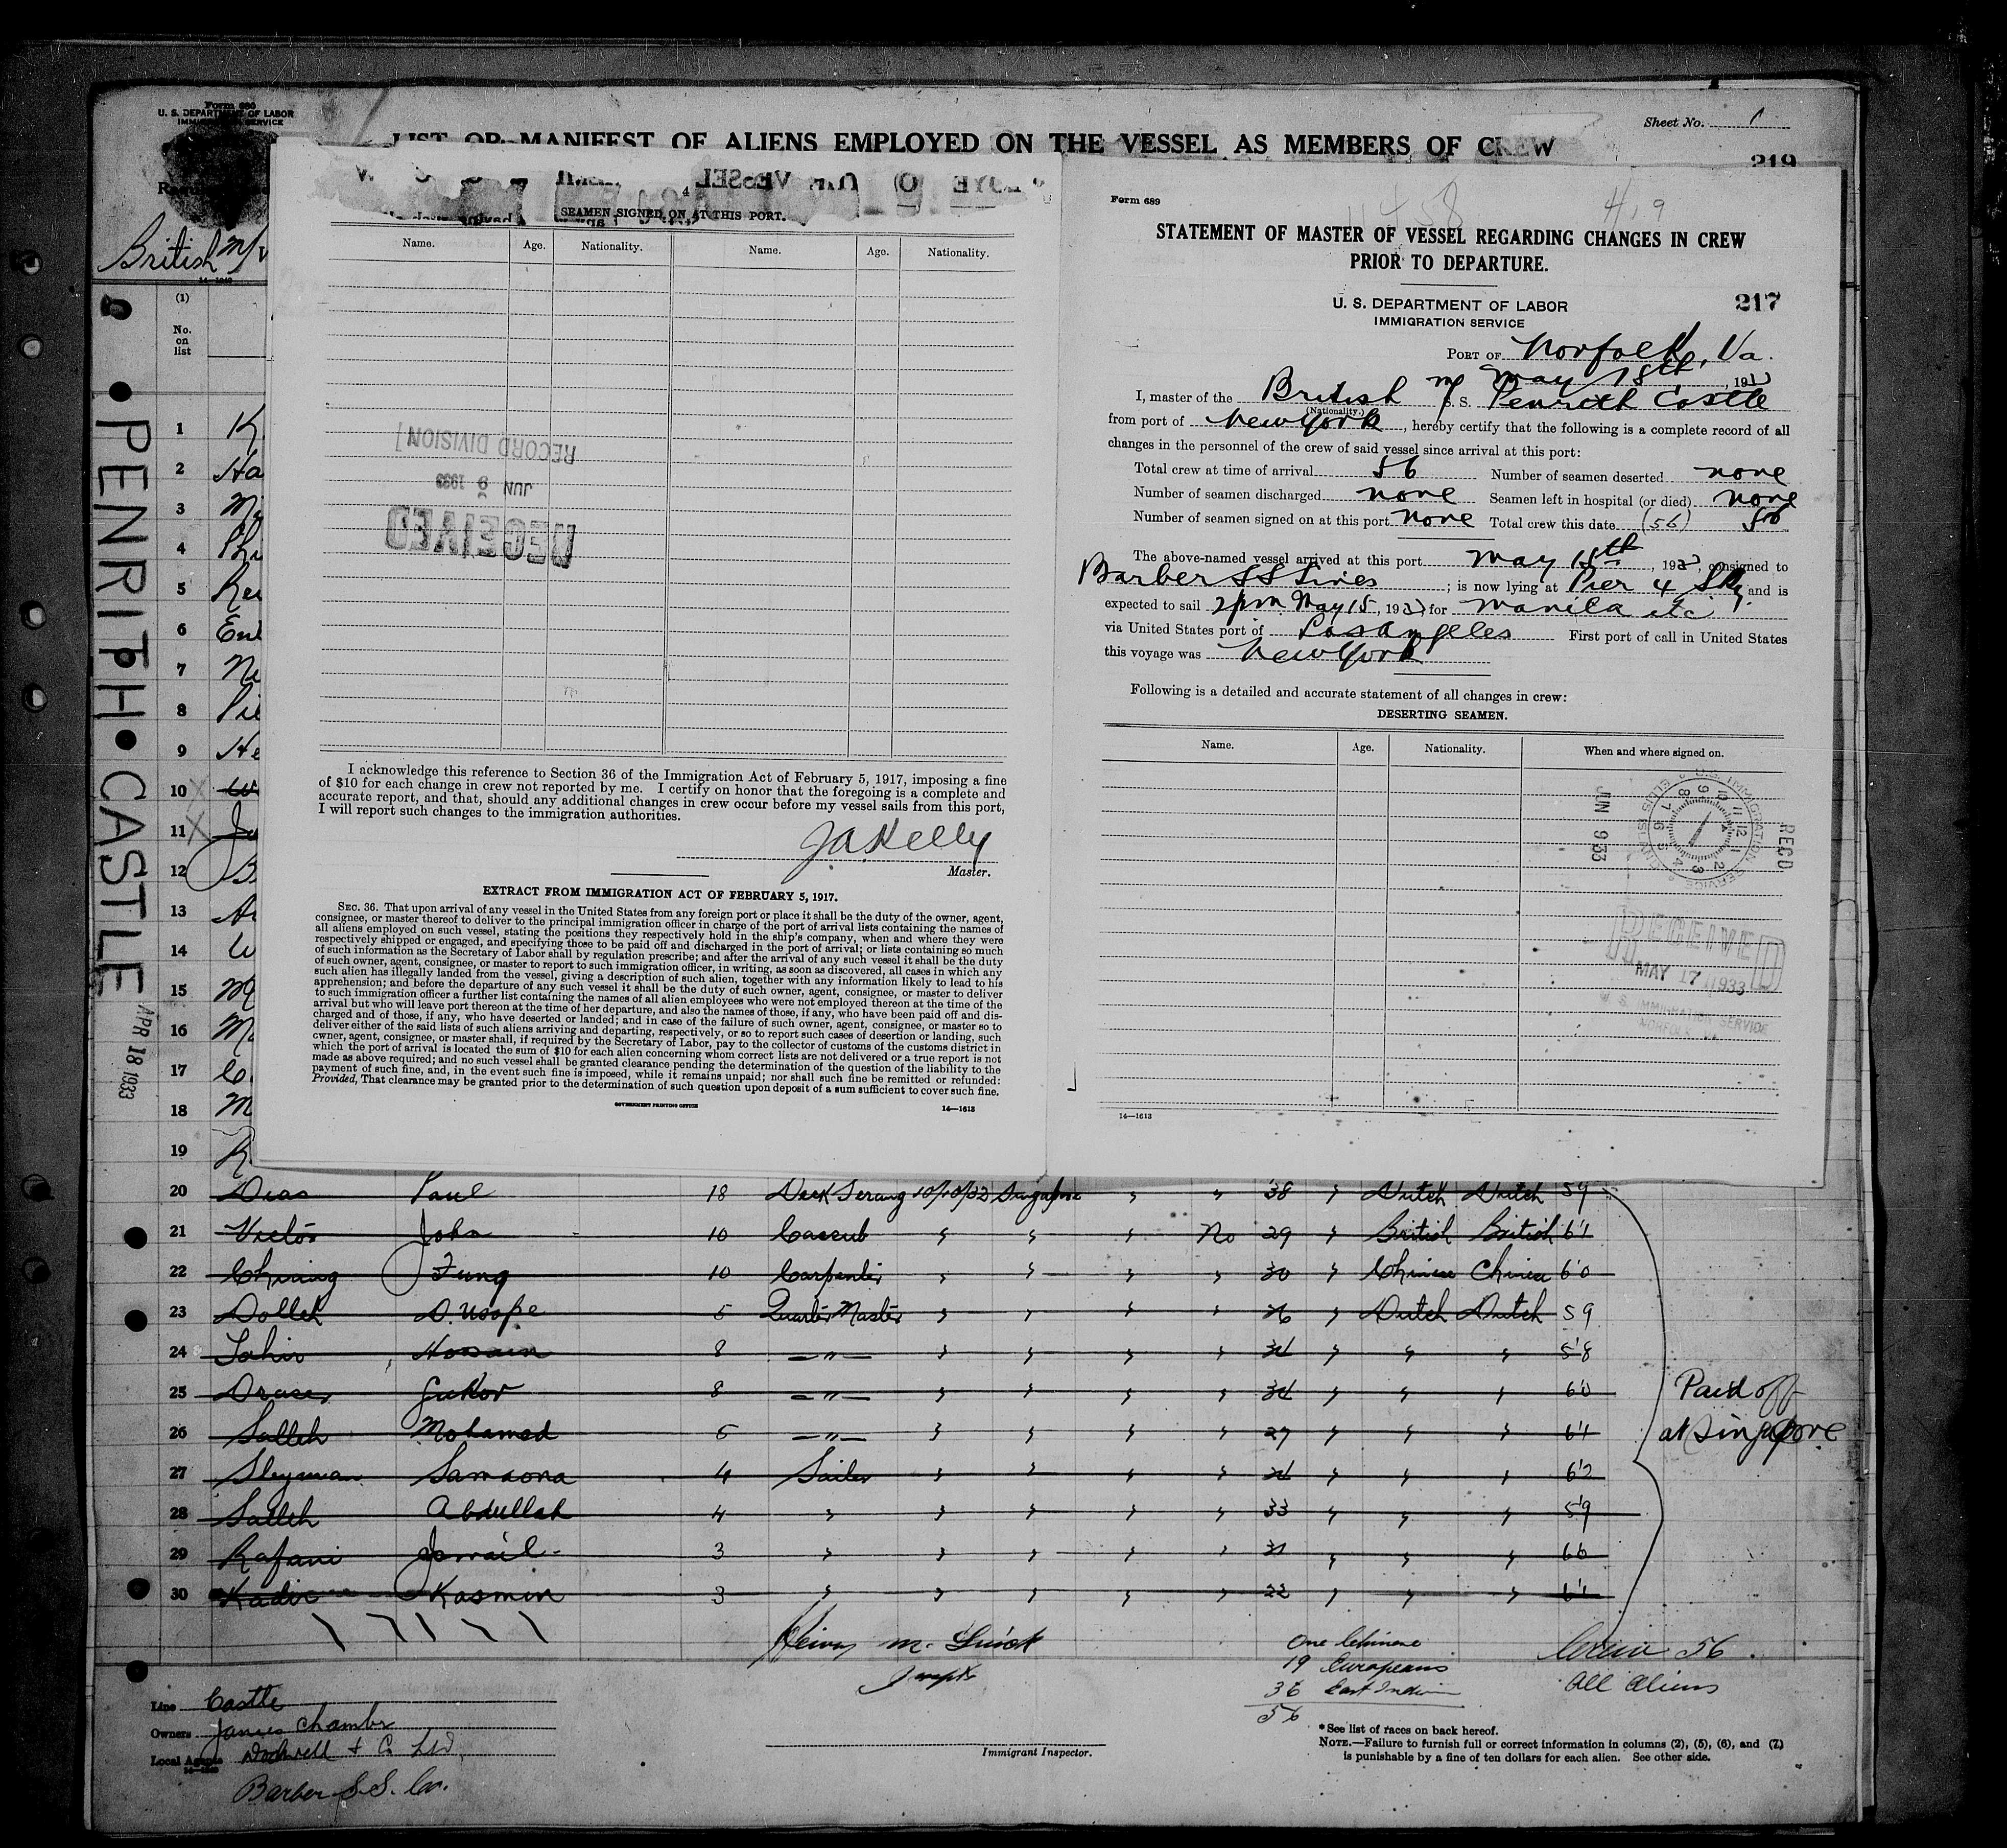 Form 680
U. S. DEPARTMENT OF LABOR
IMMIGRATION SERVICE
Sheet No. 1
LIST OR MANIFEST OF ALIENS EMPLOYED ON THE VESSEL AS MEMBERS OF CREW
219
British M/V
(1)
No.
on
list
PENRITH CASTLE
APR 18 1933
SEAMEN SIGNED ON AT THIS PORT.
Name. Age. Nationality. Name. Age. Nationality.
RECORD DIVISION
JUN 9 1933
RECEIVED
I acknowledge this reference to Section 36 of the Immigration Act of February 5, 1917, imposing a fine
of $10 for each change in crew not reported by me. I certify on honor that the foregoing is a complete and
accurate report, and that, should any additional changes in crew occur before my vessel sails from this port,
I will report such changes to the immigration authorities.
J A Kelly
Master.
EXTRACT FROM IMMIGRATION ACT OF FEBRUARY 5, 1917.
SEC. 36. That upon arrival of any vessel in the United States from any foreign port or place it shall be the duty of the owner, agent,
consignee, or master thereof to deliver to the principal immigration officer in charge of the port of arrival lists containing the names of
all aliens employed on such vessel, stating the positions they respectively hold in the ship's company, when and where they were
respectively shipped or engaged, and specifying those to be paid off and discharged in the port of arrival; or lists containing so much
of such information as the Secretary of Labor shall by regulation prescribe; and after the arrival of any such vessel it shall be the duty
of such owner, agent, consignee, or master to report to such immigration officer, in writing, as soon as discovered, all cases in which any
such alien has illegally landed from the vessel, giving a description of such alien, together with any information likely to lead to his
apprehension; and before the departure of any such vessel it shall be the duty of such owner, agent, consignee, or master to deliver
to such immigration officer a further list containing the names of all alien employees who were not employed thereon at the time of the
arrival but who will leave port thereon at the time of her departure, and also the names of those, if any, who have been paid off and dis-
charged and of those, if any, who have deserted or landed; and in case of the failure of such owner, agent, consignee, or master so to
deliver either of the said lists of such aliens arriving and departing, respectively, or so to report such cases of desertion or landing, such
owner, agent, consignee, or master shall, if required by the Secretary of Labor, pay to the collector of customs of the customs district in
which the port of arrival is located the sum of $10 for each alien concerning whom correct lists are not delivered or a true report is not
made as above required; and no such vessel shall be granted clearance pending the determination of the question of the liability to the
payment of such fine, and, in the event such fine is imposed, while it remains unpaid; nor shall such fine be remitted or refunded:
Provided, That clearance may be granted prior to the determination of such question upon deposit of a sum sufficient to cover such fine.
GOVERNMENT PRINTING OFFICE 14—1613
Form 689
STATEMENT OF MASTER OF VESSEL REGARDING CHANGES IN CREW
PRIOR TO DEPARTURE.
U. S. DEPARTMENT OF LABOR
IMMIGRATION SERVICE
217
PORT OF Norfolk, Va.
May 15th, 1933
I, master of the British M/S. S. Penrith Castle
(Nationality.)
from port of New York, hereby certify that the following is a complete record of all
changes in the personnel of the crew of said vessel since arrival at this port:
Total crew at time of arrival 56 Number of seamen deserted none
Number of seamen discharged none Seamen left in hospital (or died) none
Number of seamen signed on at this port none Total crew this date (56) 56
The above-named vessel arrived at this port May 15th, 1933, consigned to
Barber SS Lines; is now lying at Pier 4 and is
expected to sail 2pm May 15, 1933 for Manila etc
via United States port of Los Angeles First port of call in United States
this voyage was New York
Following is a detailed and accurate statement of all changes in crew:
DESERTING SEAMEN.
Name. Age. Nationality. When and where signed on.
U. S. IMMIGRATION SERVICE ELLIS ISLAND
JUN 9 33
REC'D
RECEIVED
MAY 17 1933
U. S. IMMIGRATION SERVICE
NORFOLK
14—1613
1
2 Ha
3
4
5
6
7
8
9 He
10
11
12 B
13
14
15
16
17
18 M
19
20 Dias Paul 18 Deck Serang 10/10/32 Singapore " " 38 " Dutch Dutch 5'9
21 Victor John 10 Cassub " " " No 29 " British British 6'1
22 Chiang Fung 10 Carpenter " " " " 30 " Chinese Chinese 6'0
23 Dolleh 5 Quarter Master " " " " 26 " Dutch Dutch 5'9
24 Tahir Hossain 8 —"— " " " " 34 " " " 5'8
25 8 —"— " " " " 34 " " " 6'0
26 Salleh Mohamed 5 —"— " " " " 27 " " " 6'1
27 Sleyman Samsona 4 Sailor " " " " 26 " " " 6'2
28 Salleh Abdullah 4 " " " " " 33 " " " 5'9
29 Rafani Ismail 3 " " " " " 31 " " " 6'0
30 Kadir Kasmin 3 " " " " " 22 " " " 6'1
Paid off
at Singapore
One Chinese
19 Europeans
36 East Indian
56
Crew 56.
All Aliens
Line Castle
Owners James Chambr
Local Agents Dodwell & Co Ltd,
14—1640
Barber S.S. Co.
Immigrant Inspector.
*See list of races on back hereof.
NOTE.—Failure to furnish full or correct information in columns (2), (5), (6), and (7)
is punishable by a fine of ten dollars for each alien. See other side.